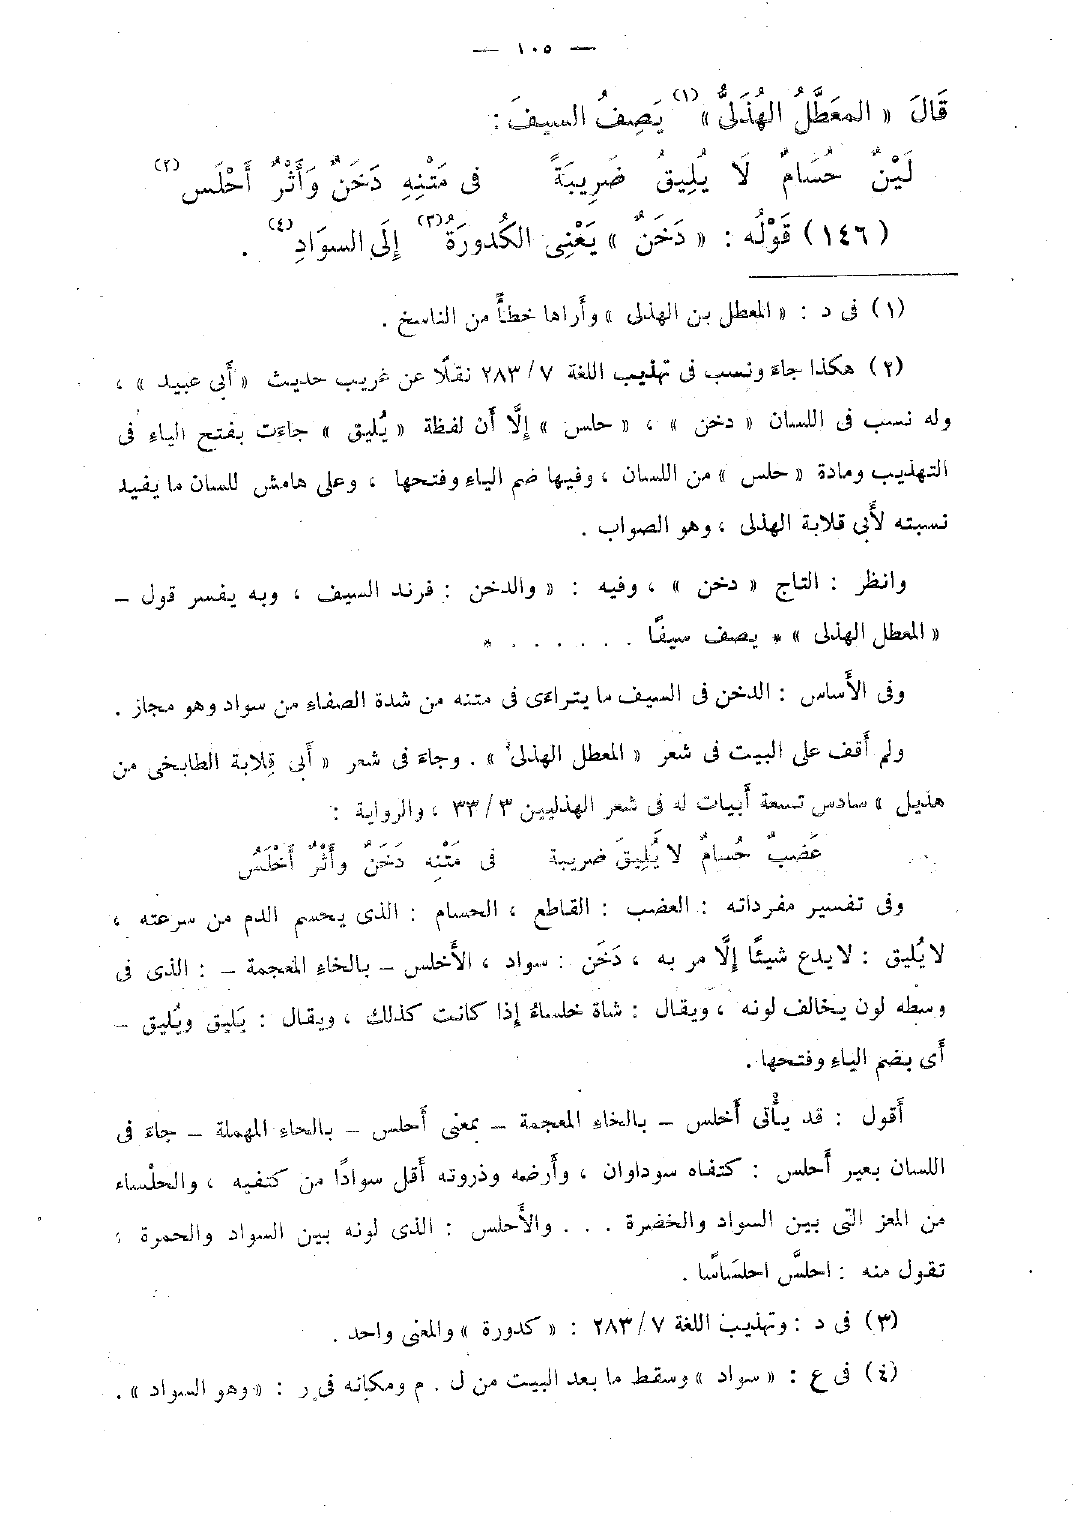 — ١٠٥ —
قَالَ « المعَطَّلُ الهُذَلىُّ »(١) يَصِفُ السيفَ :
لَيْنٌ حُسَامٌ لَا يُلِيقُ ضَرِيبَةً فى مَتْنِهِ دَخَنٌ وَأَثْرٌ أَحْلَس(٢)
(١٤٦) قَوْلُه : « دَخَنٌ » يَعْنِى الكُدورَةُ(٣) إِلَى السوَادِ(٤) .
(١) فى د : « المعطل بن الهذلى » وأراها خطأً من الناسخ .
(٢) هكذا جاء ونسب فى تهذيب اللغة ٧/ ٢٨٣ نقلًا عن غريب حديث « أَبى عبيد » ،
وله نسب فى اللسان « دخن » ، « حلس » إِلَّا أَن لفظة « يُليق » جاءَت بفتح الياء فى
التهذيب ومادة « حلس » من اللسان ، وفيها ضم الياء وفتحها ، وعلى هامش للسان ما يفيد
نسبته لأَبى قلابة الهذلى ، وهو الصواب .
وانظر : التاج « دخن » ، وفيه : « والدخن : فرند السيف ، وبه يفسر قول –
« المعطل الهذلى » * يصف سيفًا . . . . . . *
وفى الأَساس : الدخن فى السيف ما يتراءَى فى متنه من شدة الصفاء من سواد وهو مجاز .
ولم أَقف على البيت فى شعر « المعطل الهذلى » . وجاءَ فى شعر « أَبى قِلابة الطابخى من
هذيل » سادس تسعة أَبيات له فى شعر الهذليين ٣/ ٣٣ ، والرواية :
عَضبٌ حُسامٌ لا يُلِيقَ ضريبة فى مَتْنِه دَخَنٌ وأَثْرٌ أَخْلَسُ
وفى تفسير مفرداته : العضب : القاطع ، الحسام : الذى يحسم الدم من سرعته ،
لا يُليق : لا يدع شيئًا إِلَّا مر به ، دَخَن : سواد ، الأَخلس – بالخاءِ المعجمة – : الذى فى
وسطه لون يخالف لونه ، ويقال : شاة خلساءُ إِذا كانت كذلك ، ويقال : يَليق ويُليق –
أَى بضم الياءِ وفتحها .
أَقول : قد يأْتى أَخلس – بالخاءِ المعجمة – بمعنى أَحلس – بالحاءِ المهملة – جاءَ فى
اللسان بعير أَحلس : كتفاه سوداوان ، وأَرضه وذروته أَقل سوادًا من كتفيه ، والحلْساء
من المعز التى بين السواد والخضرة . . . والأَحلس : الذى لونه بين السواد والحمرة ؛
تقول منه : احلسَّ احلسَاسًا .
(٣) فى د : وتهذيب اللغة ٧/ ٢٨٣ : « كدورة » والمعنى واحد .
(٤) فى ع : « سواد » وسقط ما بعد البيت من ل . م ومكانه فى ر : « وهو السواد » .